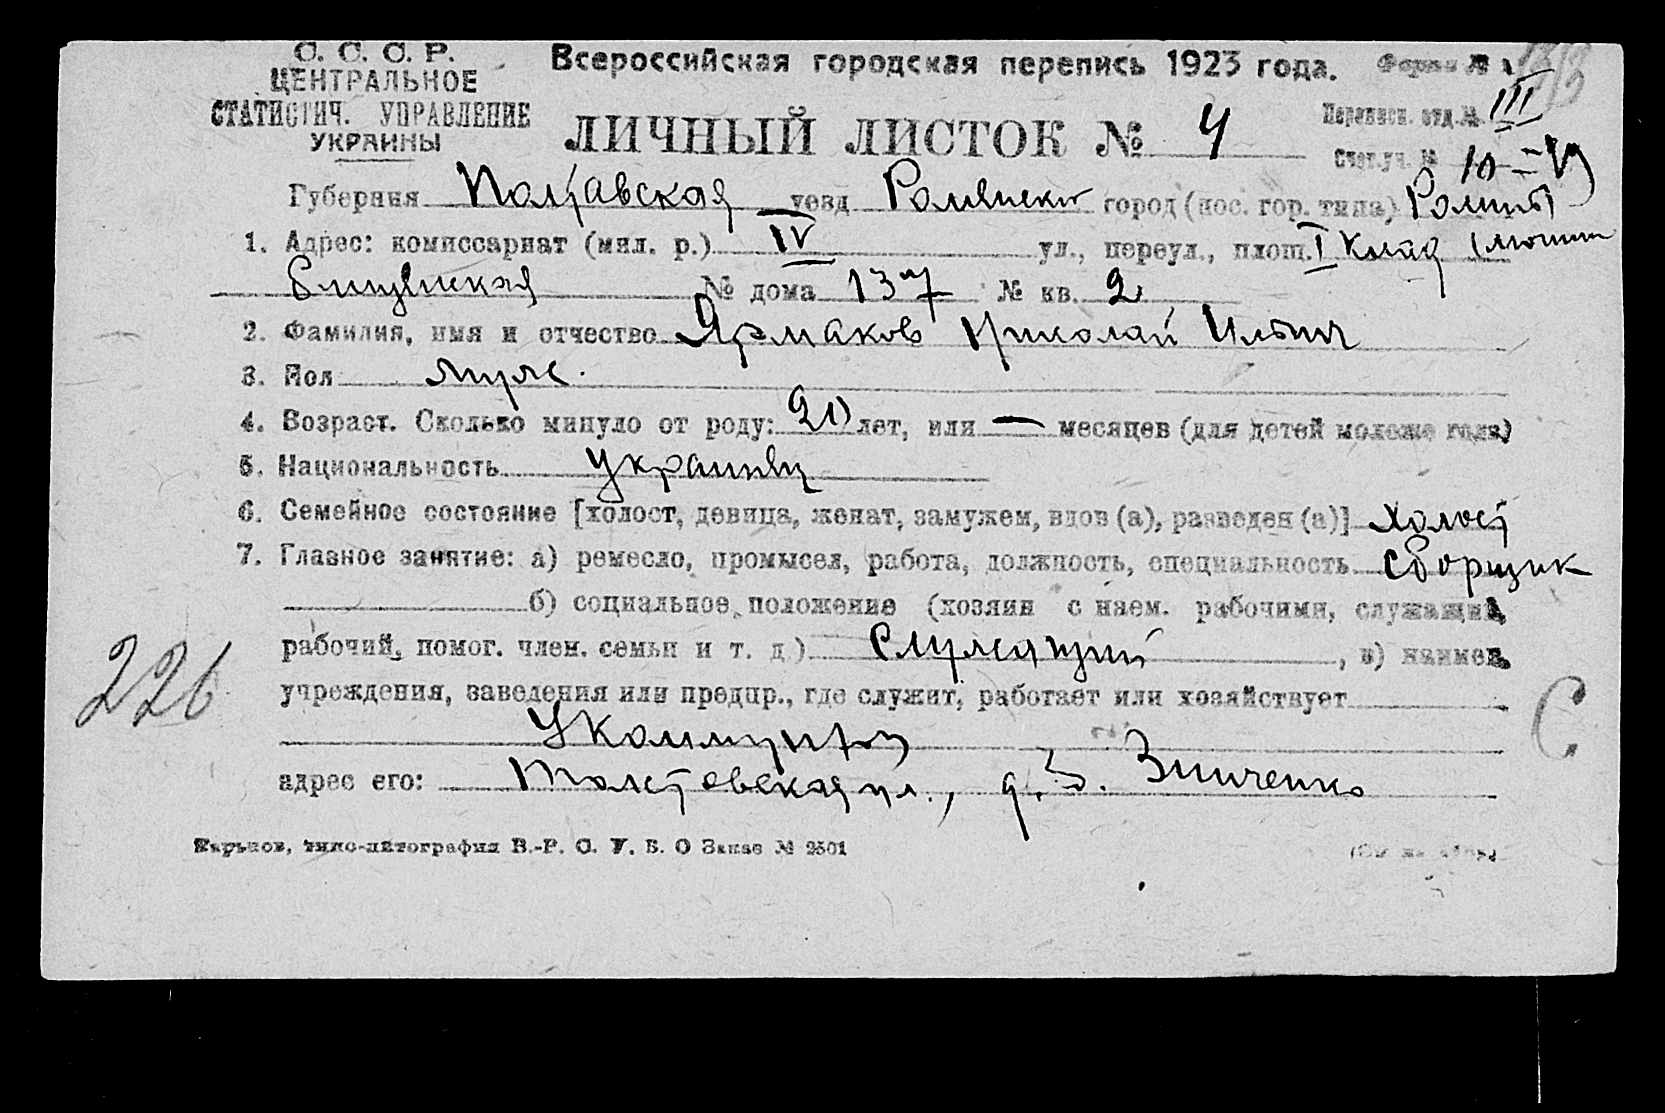 С. С. С. Р.
ЦЕНТРАЛЬНОЕ
СТАТИСТИЧ. УПРАВЛЕНИЕ
УКРАИНЫ
Всероссийская городская перепись 1923 года. Форма № 1
ЛИЧНЫЙ ЛИСТОК № 4
Переписн. отд. № III
Счет. уч. № 10
Губерния Полтавская уезд Роменский город (пос. гор. типа) Ромны
1. Адрес: комиссариат (мил. р.) IV ул., переул., площ. I
№ дома 137 № кв. 2
2. Фамилия, имя и отчество Ярмаков Николай Ильич
3. Пол муж.
4. Возраст. Сколько минуло от роду: 20 лет, или — месяцев (для детей моложе года)
5. Национальность украинец
6. Семейное состояние [холост, девица, женат, замужем, вдов (а), разведен (а)] холост
7. Главное занятие: а) ремесло, промысел, работа, должность, специальность сборщик
б) социальное положение (хозяин с наем. рабочими, служащий,
рабочий, помог. член. семьи и т. д.) служащий, в) наимен.
учреждения, заведения или предпр., где служит, работает или хозяйствует
адрес его: Толстовская ул., д. Зинченко
226
С
Харьков, типо-литография В.-Р. С. У. В. О Заказ № 2501